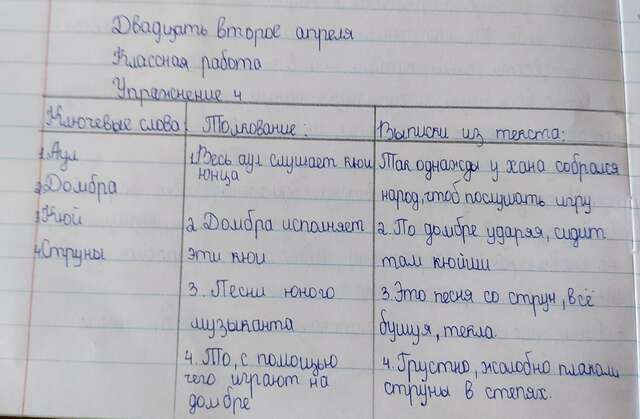 Двадцать второе апреля
Классная работа
Упражнение 4
Ключевые слова
Толкование:
Выписки из текста:
1. Аул
2. Домбра
3. Кюй
4. Струны
1. Весь аул слушает кюи
юнца
2. Домбра исполняет
эти кюи
3. Песни юного
музыканта
4. То, с помощью
чего играют на
домбре
Так однажды у хана собрался
народ, чтоб послушать игру
2. По домбре ударяя, сидит
там кюйши
3. Это песня со струн, всё
бушуя, текла.
4. Грустно, жалобно плакали
струны в степях.